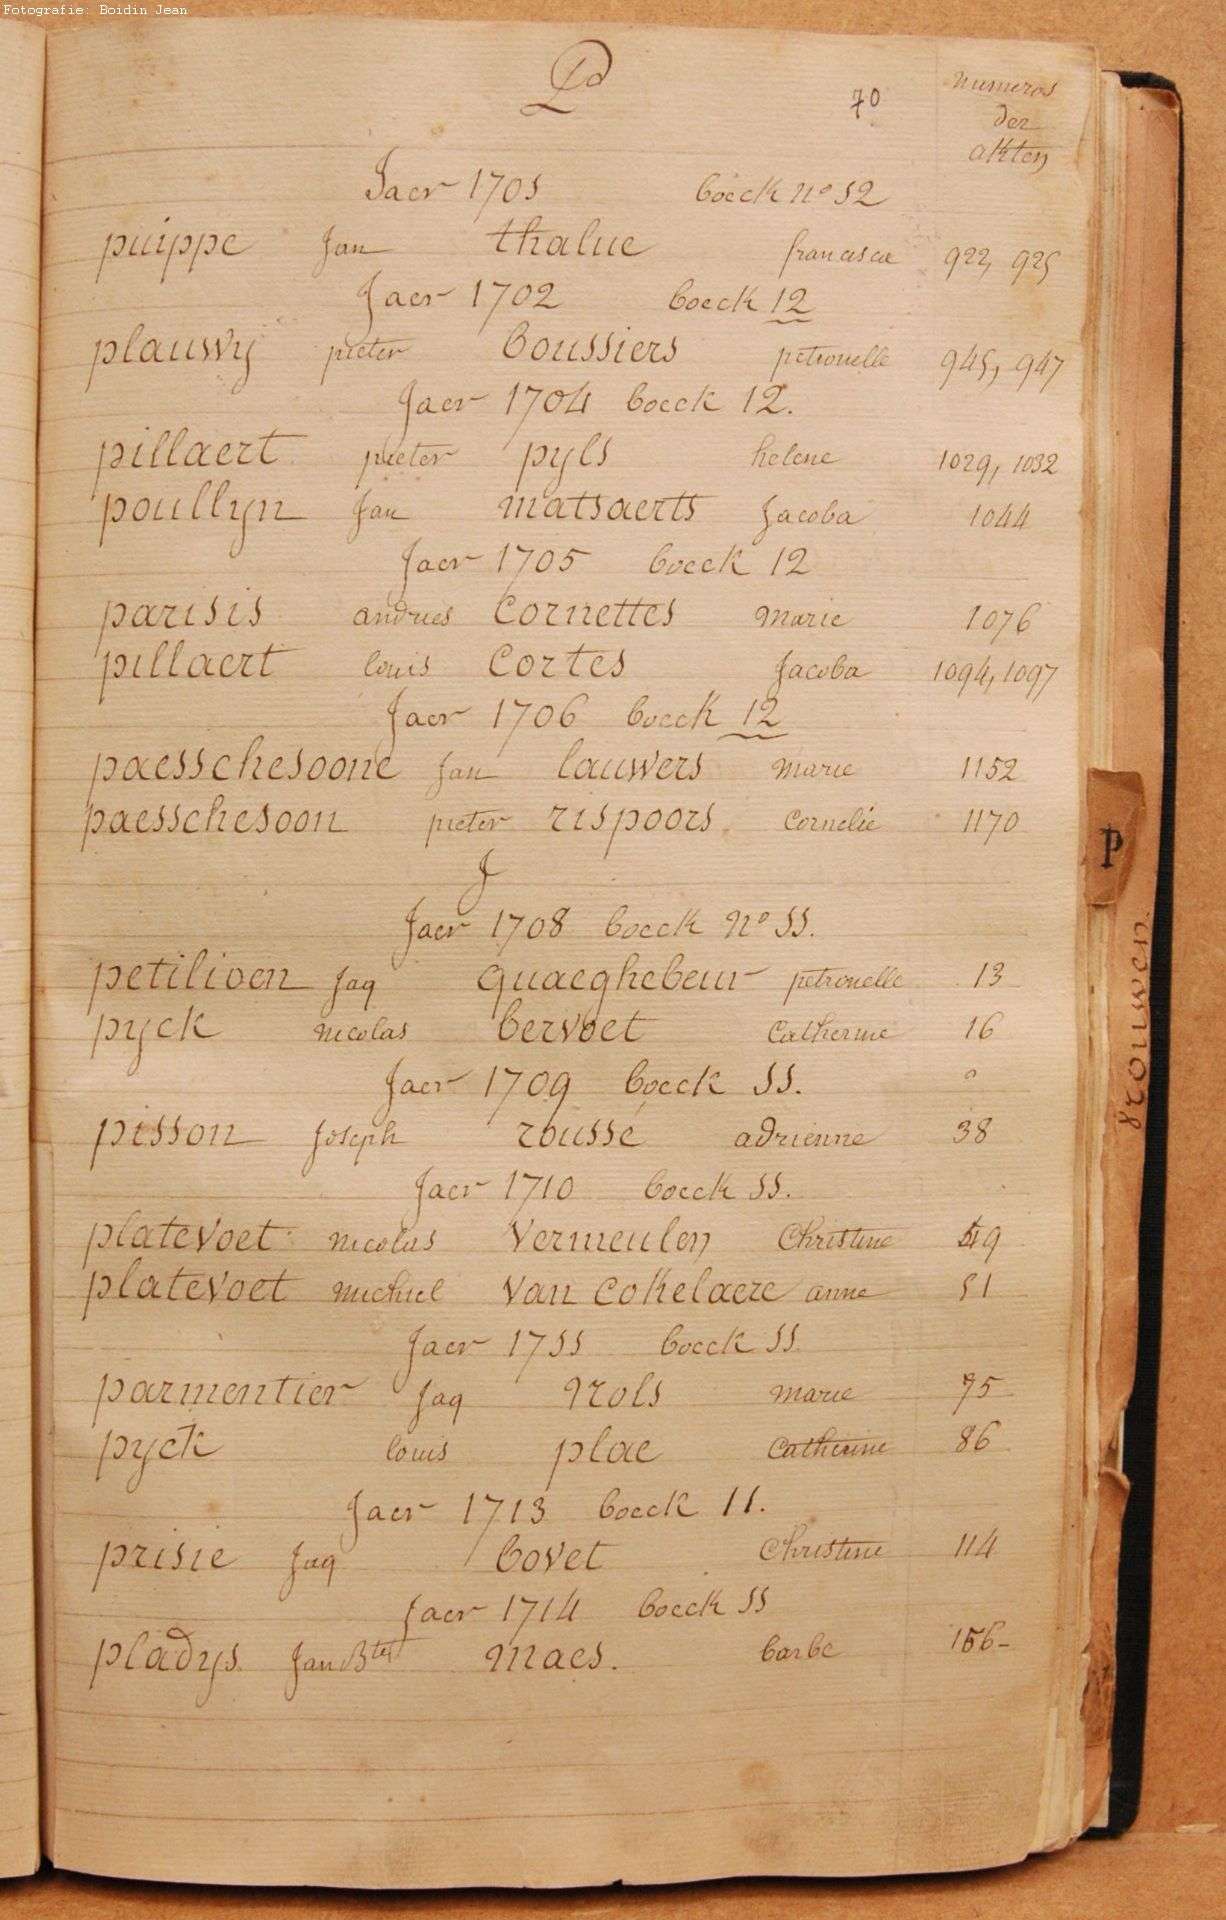 Fotografie: Boidin Jean
P
70
numeros
der
akten
Jaer 1701 boeck no 12
puippe Jan thalue francisca 922, 925
Jaer 1702 boeck 12
plauwy pieter boussiers petronelle 945, 947
Jaer 1704 boeck 12.
pillaert pieter pyls helene 1029, 1032
poullyn Jan matsaerts Jacoba 1044
Jaer 1705 boeck 12
parisis andries cornettes marie 1076
pillaert louis cortes Jacoba 1094, 1097
Jaer 1706 boeck 12
paesschesoone Jan lauwers marie 1152
paesschesoon pieter rispoors. cornelie 1170
J
Jaer 1708 boeck No 11.
petilioen Jaq quaeghebeur petronelle 13
pyck nicolas bervoet catherine 16
Jaer 1709 boeck 11.
pisson Joseph rousse adrienne 38
Jaer 1710 boeck 11.
platevoet nicolas vermeulen Christine 49
platevoet michiel van cokelaere anne 51
Jaer 1711 boeck 11
parmentier Jaq nols marie 75
pyck louis plae catherine 86
Jaer 1713 boeck 11.
prisie Jaq bovet Christine 114
Jaer 1714 boeck 11
pladys Jan Bte maes. barbe 156
P
vrouwen